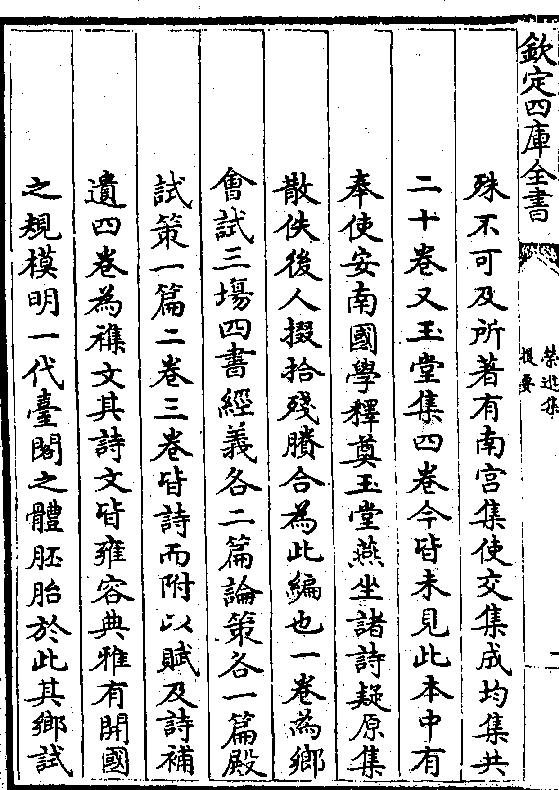 欽定四庫全書
榮進集
提要
一
殊不可及所著有南宫集使交集成均集共
二十卷又玉堂集四卷今皆未見此本中有
奉使安南國學釋奠玉堂燕坐諸詩疑原集
散佚後人掇拾殘賸合為此編也一卷為鄉
會試三場四書經義各二篇論策各一篇殿
試策一篇二卷三卷皆詩而附以賦及詩補
遺四卷為襍文其詩文皆雍容典雅有開國
之規模明一代臺閣之體胚胎於此其鄉試